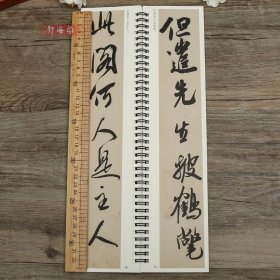 但遣先生披鶴氅
此閣何人是主人